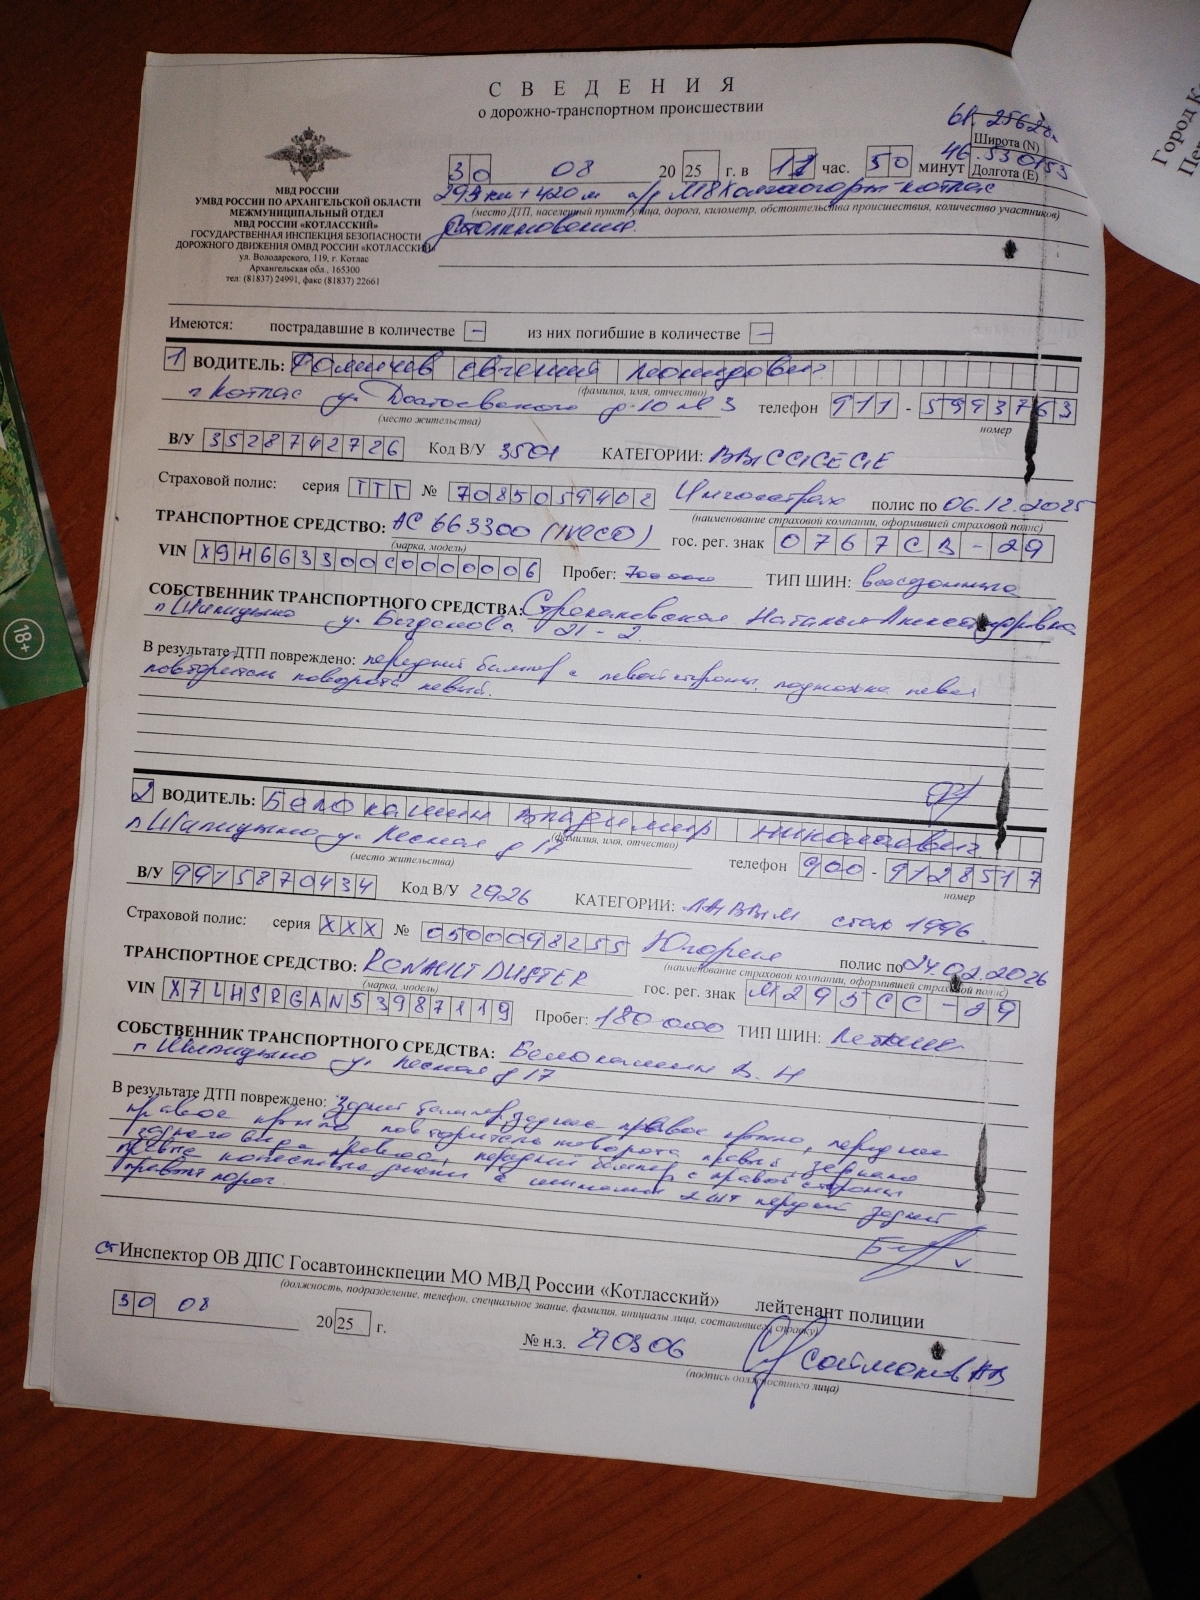 С В Е Д Е Н И Я
о дорожно-транспортном происшествии
61. 25620
Широта (N)
46. 530153
Долгота (E)
МВД РОССИИ
УМВД РОССИИ ПО АРХАНГЕЛЬСКОЙ ОБЛАСТИ
МЕЖМУНИЦИПАЛЬНЫЙ ОТДЕЛ
МВД РОССИИ «КОТЛАССКИЙ»
ГОСУДАРСТВЕННАЯ ИНСПЕКЦИЯ БЕЗОПАСНОСТИ
ДОРОЖНОГО ДВИЖЕНИЯ ОМВД РОССИИ «КОТЛАССКИЙ»
ул. Володарского, 119, г. Котлас
Архангельская обл., 165300
тел: (81837) 24991, факс (81837) 22661
30 08 20 25 г. в час. 50 минут
км + 420 м а/д М8 Холмогоры-Котлас
(место ДТП, населенный пункт, улица, дорога, километр, обстоятельства происшествия, количество участников)
Столкновение.
Имеются: пострадавшие в количестве – из них погибшие в количестве –
1 ВОДИТЕЛЬ: Фомичев Евгений Леонидович
(фамилия, имя, отчество)
г. Котлас ул. Достоевского д-10 кв 3 телефон 911 - 5993763
(место жительства) номер
В/У 3528742726 Код В/У 3501 КАТЕГОРИИ: BB1CC1CEC1E
Страховой полис: серия ТТТ № 7085059402 Ингосстрах полис по 06.12.2025
(наименование страховой компании, оформившей страховой полис)
ТРАНСПОРТНОЕ СРЕДСТВО: АС 663300 (IVECO) гос. рег. знак О767СВ-29
(марка, модель)
VIN X9H663300C0000006 Пробег: 700000 ТИП ШИН: всесезонные
СОБСТВЕННИК ТРАНСПОРТНОГО СРЕДСТВА: Наталья Александровна
п. Шипицыно ул. Богданова 21-2
В результате ДТП повреждено: передний бампер с левой стороны, подножка левая
повторитель поворота левый.
2 ВОДИТЕЛЬ: Белокашин Владимир Николаевич
(фамилия, имя, отчество)
п. Шипицыно ул. Лесная д 17
(место жительства)
телефон 900 - 9128517
номер
В/У 9915870434 Код В/У 2926 КАТЕГОРИИ: стаж 1996
Страховой полис: серия ХХХ № 0500098255 Югория полис по 24.02.2026
(наименование страховой компании, оформившей страховой полис)
ТРАНСПОРТНОЕ СРЕДСТВО: RENAULT DUSTER гос. рег. знак М295СС-29
(марка, модель)
VIN X7LHSRGAN53987119 Пробег: 180000 ТИП ШИН: Летние
СОБСТВЕННИК ТРАНСПОРТНОГО СРЕДСТВА: Белокашин В. Н
п. Шипицыно ул. Лесная д 17
В результате ДТП повреждено: Задний бампер, заднее правое крыло, переднее
правое крыло повторитель поворота правый, зеркало
заднего вида правое, передний бампер с правой стороны
правые колесные диски с шинами 2 шт передний задний
правый порог.
ст Инспектор ОВ ДПС Госавтоинскпеции МО МВД России «Котласский» лейтенант полиции
(должность, подразделение, телефон, специальное звание, фамилия, инициалы лица, составившего справку)
30 08 20 25 г.
№ н.з. 290306
(подпись должностного лица)
Город
18+